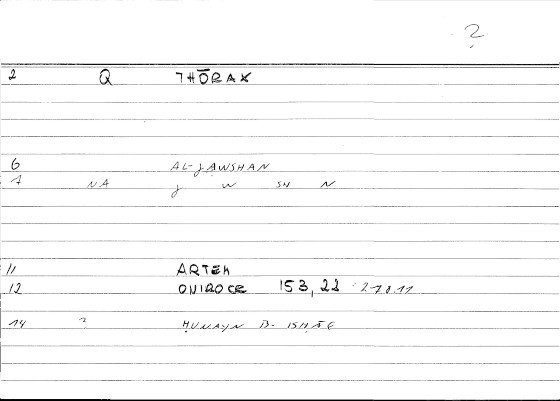 ?
2 Q THŌRAX
6 AL-JAWSHAN
7 NA J W SH N
11 ARTEM
12 ONIROCR 153, 22 278.11
14 ? ḤUNAYN B- ISḤĀQ